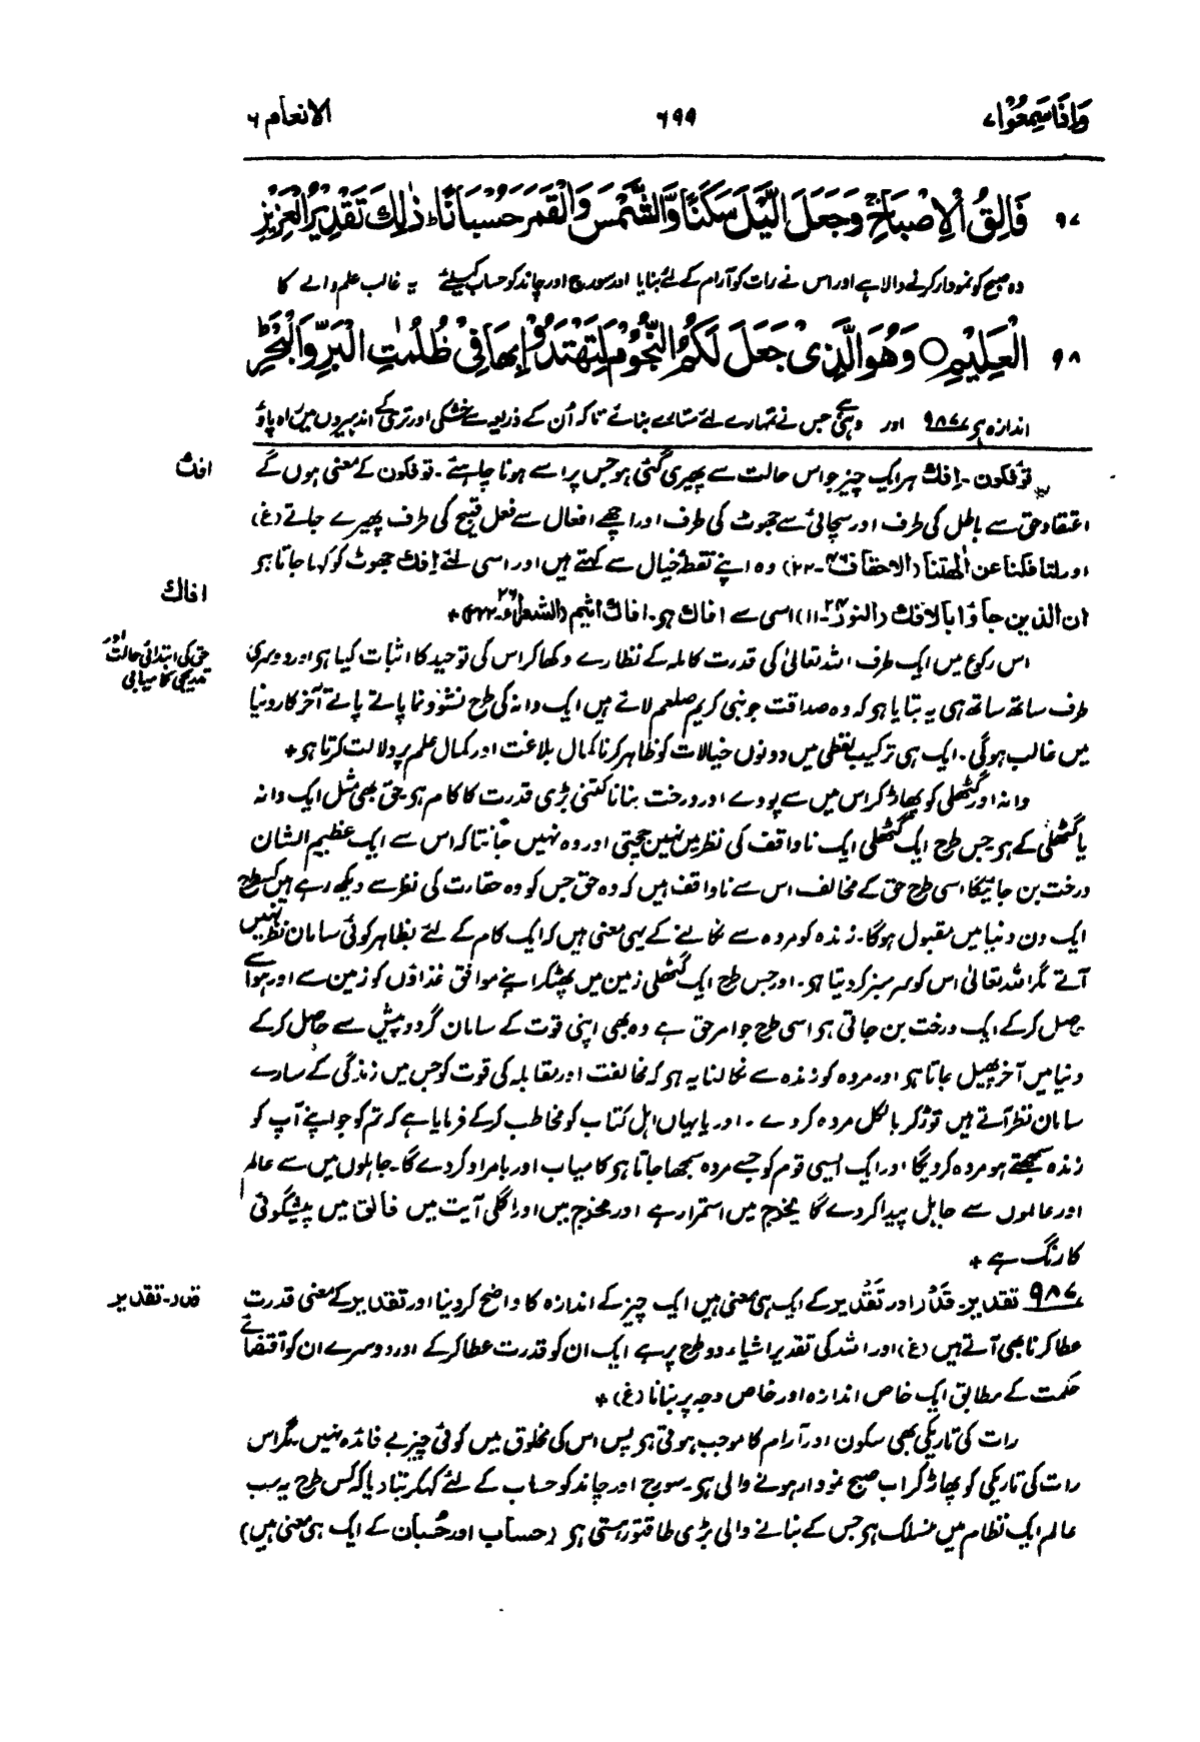 وَاِذَا سَمِعُوْا ۷ ۶۹۹ الانعام ۶
۹۷ فَالِقُ الْاِصْبَاحِ ۚ وَجَعَلَ الَّيْلَ سَكَنًا وَّالشَّمْسَ وَالْقَمَرَ حُسْبَانًا ؕ ذٰلِكَ تَقْدِيْرُ الْعَزِيْزِ
وہ صبح کو نمودار کرنے والا ہے اور اس نے رات کو آرام کے لئے بنایا اور سورج اور چاند کو حساب کیلئے یہ غالب علم والے کا
۹۸ الْعَلِيْمِ ○ وَهُوَ الَّذِىْ جَعَلَ لَكُمُ النُّجُوْمَ لِتَهْتَدُوْا بِهَا فِىْ ظُلُمٰتِ الْبَرِّ وَالْبَحْرِ ؕ
اندازہ ہے ۹۸۷ اور وہی ہے جس نے تمہارے لئے ستارے بنائے تاکہ اُن کے ذریعہ سے خشکی اور تری کے اندھیروں میں راہ پاؤ
توفکون ۔ اِفک ہر ایک چیز جو اس حالت سے پھیری گئی ہو جس پر اسے ہونا چاہئے ۔ توفکون کے معنی ہوں گے
افک
اعتقاد حق سے باطل کی طرف اور سچائی سے جھوٹ کی طرف اور اچھے افعال سے فعل قبیح کی طرف پھیرے جاتے (غ)
اور لتافکنا عن اٰلھتنا (الاحقاف ۴۶-۲۲) وہ اپنے نقطۂ خیال سے کہتے ہیں اور اسی لئے اِفک جھوٹ کو کہا جاتا ہو
ان الذین جاؤا بالافک (النور ۲۴-۱۱) اسی سے افاک ہو۔ افاک اثیم (الشعراء ۲۶-۲۲۲)+
افاک
اس رکوع میں ایک طرف اللہ تعالیٰ کی قدرت کاملہ کے نظارے دکھا کر اس کی توحید کا اثبات کیا ہو اور دوسری
حق کی ابتدائی حالت اور
تدریجی کامیابی
طرف ساتھ ساتھ ہی یہ بتایا ہو کہ وہ صداقت جو نبی کریم صلعم لائے ہیں ایک دانہ کی طرح نشوونما پاتے پاتے آخر کار دنیا
میں غالب ہوگی۔ ایک ہی ترکیب لفظی میں دونوں خیالات کو ظاہر کرنا کمال بلاغت اور کمال علم پر دلالت کرتا ہو+
دانہ اور گٹھلی کو پھاڑ کر اس میں سے پودے اور درخت بنانا کتنی بڑی قدرت کا کام ہو حق بھی مثل ایک دانہ
یا گٹھلی کے ہو جس طرح ایک گٹھلی ایک ناواقف کی نظر میں نہیں جچتی اور وہ نہیں جانتا کہ اس سے ایک عظیم الشان
درخت بن جائیگا اسی طرح حق کے مخالف اس سے ناواقف ہیں کہ وہ حق جس کو وہ حقارت کی نظر سے دیکھ رہے ہیں کس طرح
ایک دن دنیا میں مقبول ہوگا۔ زندہ کو مردہ سے نکالنے کے یہی معنی ہیں کہ ایک کام کے لئے بظاہر کوئی سامان نظر نہیں
آتے مگر اللہ تعالیٰ اس کو سرسبز کر دیتا ہو۔ اور جس طرح ایک گٹھلی زمین میں پھٹکر اپنے موافق غذاؤں کو زمین سے اور ہوا سے
حاصل کر کے ایک درخت بن جاتی ہو اسی طرح جو امر حق ہے وہ بھی اپنی قوت کے سامان گردوپیش سے حاصل کر کے
دنیا میں آخر پھیل جاتا ہو اور مردہ کو زندہ سے نکالنا یہ ہو کہ مخالفت اور مقابلہ کی قوت کو جس میں زندگی کے سارے
سامان نظر آتے ہیں توڑ کر بالکل مردہ کر دے ۔ اور یا یہاں اہل کتاب کو مخاطب کر کے فرمایا ہے کہ تم کو جو اپنے آپ کو
زندہ سمجھتے ہو مردہ کر دیگا اور ایک ایسی قوم کو جسے مردہ سمجھا جاتا ہو کامیاب اور بامراد کر دے گا۔ جاہلوں میں سے عالم
اور عالموں سے جاہل پیدا کر دے گا یخرج میں استمرار ہے اور مخرج میں اور اگلی آیت میں فالق میں پیشگوئی
کا رنگ ہے+
۹۸۷ تقدیر۔ قَدْر اور تَقْدِیر کے ایک ہی معنی ہیں ایک چیز کے اندازہ کا واضح کر دینا اور تقدیر کے معنی قدرت
قدر۔ تقدیر
عطا کرنا بھی آتے ہیں (غ) اور اللہ کی تقدیر اشیاء دو طرح پر ہے ایک ان کو قدرت عطا کر کے اور دوسرے ان کو اقتضائے
حکمت کے مطابق ایک خاص اندازہ اور خاص وجہ پر بنانا (غ)+
رات کی تاریکی بھی سکون اور آرام کا موجب ہوتی ہو پس اس کی مخلوق میں کوئی چیز بے فائدہ نہیں مگر اس
رات کی تاریکی کو پھاڑ کر اب صبح نمودار ہونے والی ہو۔ سورج اور چاند کو حساب کے لئے کہکر بتا دیا کہ کس طرح یہ سب
عالم ایک نظام میں منسلک ہو جس کے بنانے والی بڑی طاقتور ہستی ہو (حساب اور حُسْبان کے ایک ہی معنی ہیں)